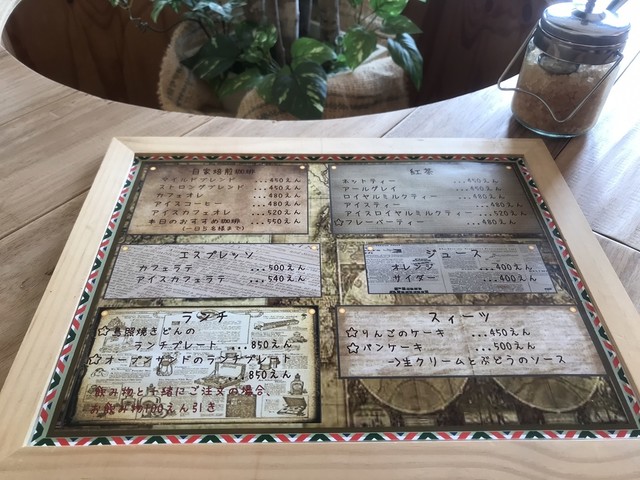 自家焙煎珈琲
マイルドブレンド ...450えん
ストロングブレンド ...450えん
カフェオレ ...480えん
アイスコーヒー ...480えん
アイスカフェオレ ...520えん
本日のおすすめ珈琲 ...550えん
(一日5名様まで)
エスプレッソ
カフェラテ ...500えん
アイスカフェラテ ...540えん
ランチ
☆鳥照焼きどんの
ランチプレート ...850えん
☆オープンサンドのランチプレート
...850えん
飲み物と一緒にご注文の場合、
お飲み物100えん引き
紅茶
ホットティー ...450えん
アールグレイ ...450えん
ロイヤルミルクティー ...480えん
アイスティー ...480えん
アイスロイヤルミルクティー ...520えん
☆フレーバーティー ...480えん
ジュース
オレンジ ...400えん
サイダー ...400えん
スィーツ
☆りんごのケーキ ...450えん
☆パンケーキ ...500えん
→生クリームとぶどうのソース